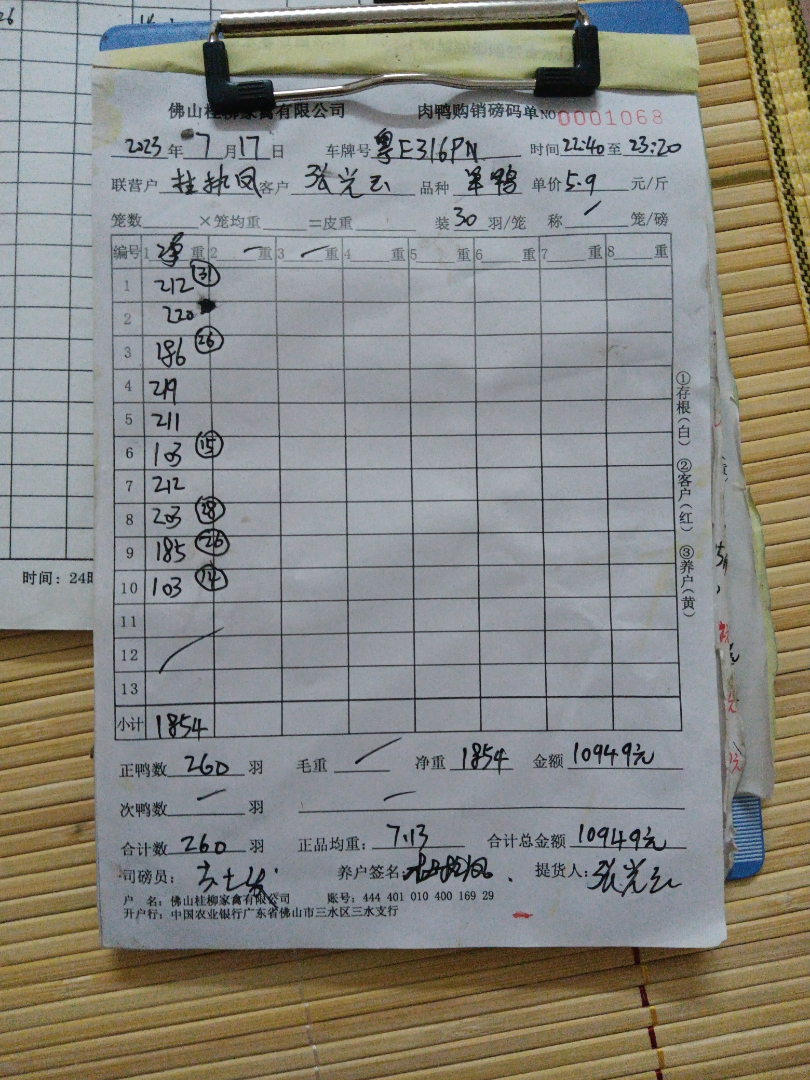 佛山桂柳家禽有限公司 肉鸭购销磅码单 NO 0001068
2023年7月17日 车牌号 粤E316PN 时间22:40至23:20
联营户 客户 张光云 品种 单价5.9元/斤
笼数 ×笼均重 =皮重 装30羽/笼 称 / 笼/磅
编号 1净重 2一重 3一重 4 重 5 重 6 重 7 重 8 重
1 212 ㉛
2 220
3 186 ㉖
4 219
5 211
6 103 ⑮
7 212
8 203 ㉘
9 185 ㉖
10 103 ⑭
11
12
13
小计 1854
正鸭数 260 羽 毛重 / 净重 1854 金额 10949元
次鸭数 一 羽 一
合计数 260 羽 正品均重: 7.13 合计总金额 10949元
司磅员: 养户签名: 提货人: 张光云
户 名: 佛山桂柳家禽有限公司 账号: 444 401 010 400 169 29
开户行: 中国农业银行广东省佛山市三水区三水支行
①存根(白) ②客户(红) ③养户(黄)
时间: 24时
26